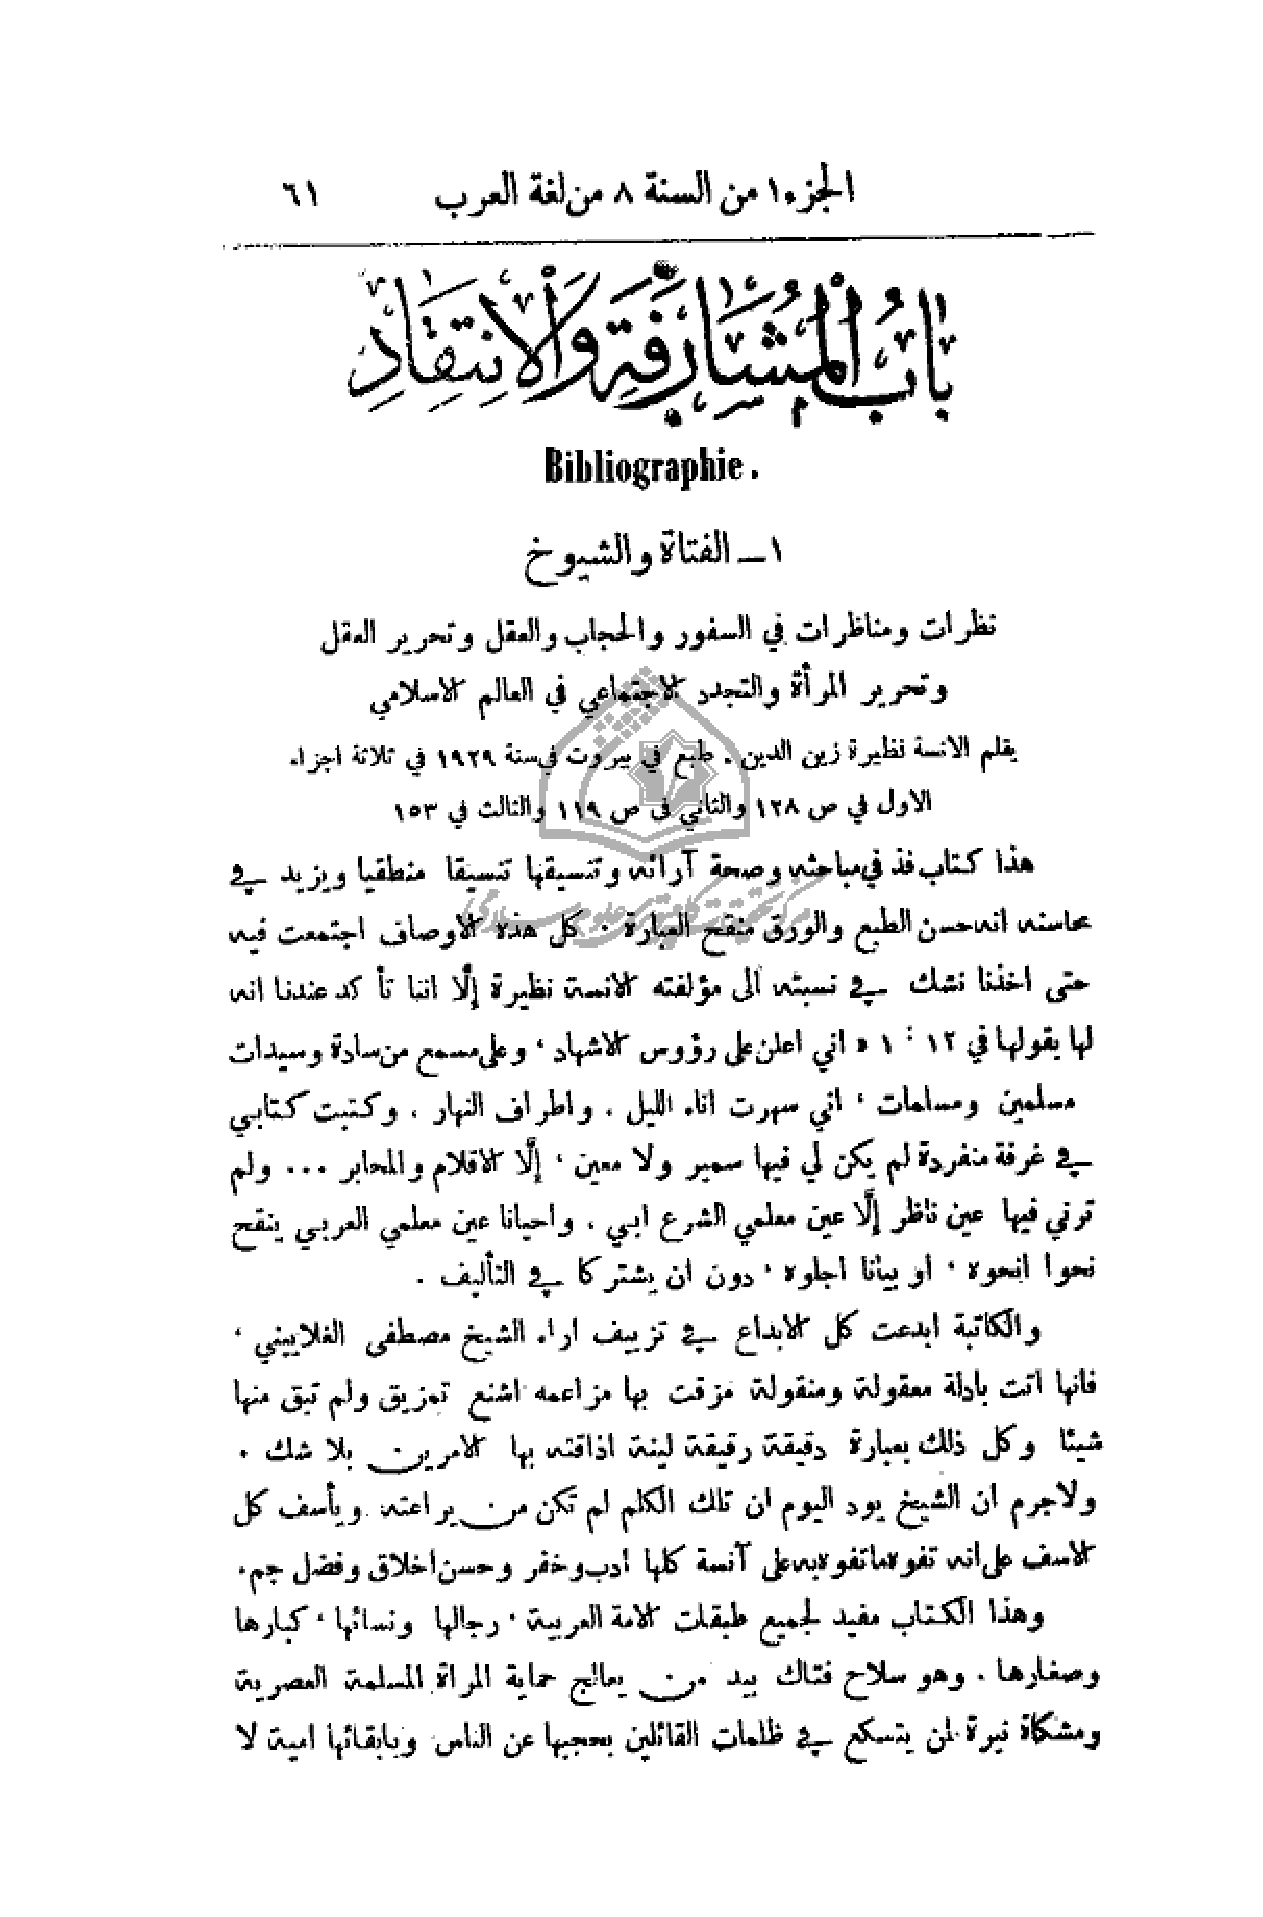 الجزء ١ من السنة ٨ من لغة العرب ٦١
بَابُ المُشَارَفَةِ وَالاِنتِقَادِ
Bibliographie.
١ — الفتاة والشيوخ
نظرات ومناظرات في السفور والحجاب والعقل وتحرير العقل
وتحرير المرأة والتجدد الاجتماعي في العالم الاسلامي
بقلم الانسة نظيرة زين الدين . طبع في بيروت في سنة ١٩٢٩ في ثلاثة اجزاء
الاول في ص ١٢٨ والثاني في ص ١١٩ والثالث في ١٥٣
هذا كتاب فذ في مباحثه وصحة آرائه وتنسيقها تنسيقا منطقيا ويزيد في
محاسنه انه حسن الطبع والورق منقح العبارة . كل هذه الاوصاف اجتمعت فيه
حتى اخذنا نشك في نسبته الى مؤلفته الانسة نظيرة إلّا اننا تأكد عندنا انه
لها بقولها في ١٢ : ١ « اني اعلن على رؤوس الاشهاد ، وعلى مسمع من سادة وسيدات
مسلمين ومسلمات ، اني سهرت اناء الليل . واطراف النهار . وكتبت كتابي
في غرفة منفردة لم يكن لي فيها سمير ولا معين ، إلّا الاقلام والمحابر ... ولم
ترني فيها عين ناظر إلّا عين معلمي الشرع ابي . واحيانا عين معلمي العربي ينقح
نحوا انحوه ، او بيانا اجلوه ، دون ان يشتركا في التأليف .
والكاتبة ابدعت كل الابداع في تزييف اراء الشيخ مصطفى الغلاييني ،
فانها اتت بادلة معقولة ومنقولة مزقت بها مزاعمه اشنع تمزيق ولم تبق منها
شيئا وكل ذلك بعبارة دقيقة رقيقة لينة اذاقته بها الامرين بلا شك .
ولاجرم ان الشيخ يود اليوم ان تلك الكلم لم تكن من يراعته ويأسف كل
الاسف على انه تفوه ما تفوه به على آنسة كلها ادب وخفر وحسن اخلاق وفضل جم .
وهذا الكتاب مفيد لجميع طبقات الامة العربية ، رجالها ونسائها ، كبارها
وصغارها . وهو سلاح فتاك بيد من يعالج حماية المراة المسلمة العصرية
ومشكاة نيرة لمن يتسكع في ظلمات القائلين بحجبها عن الناس وبابقائها امية لا